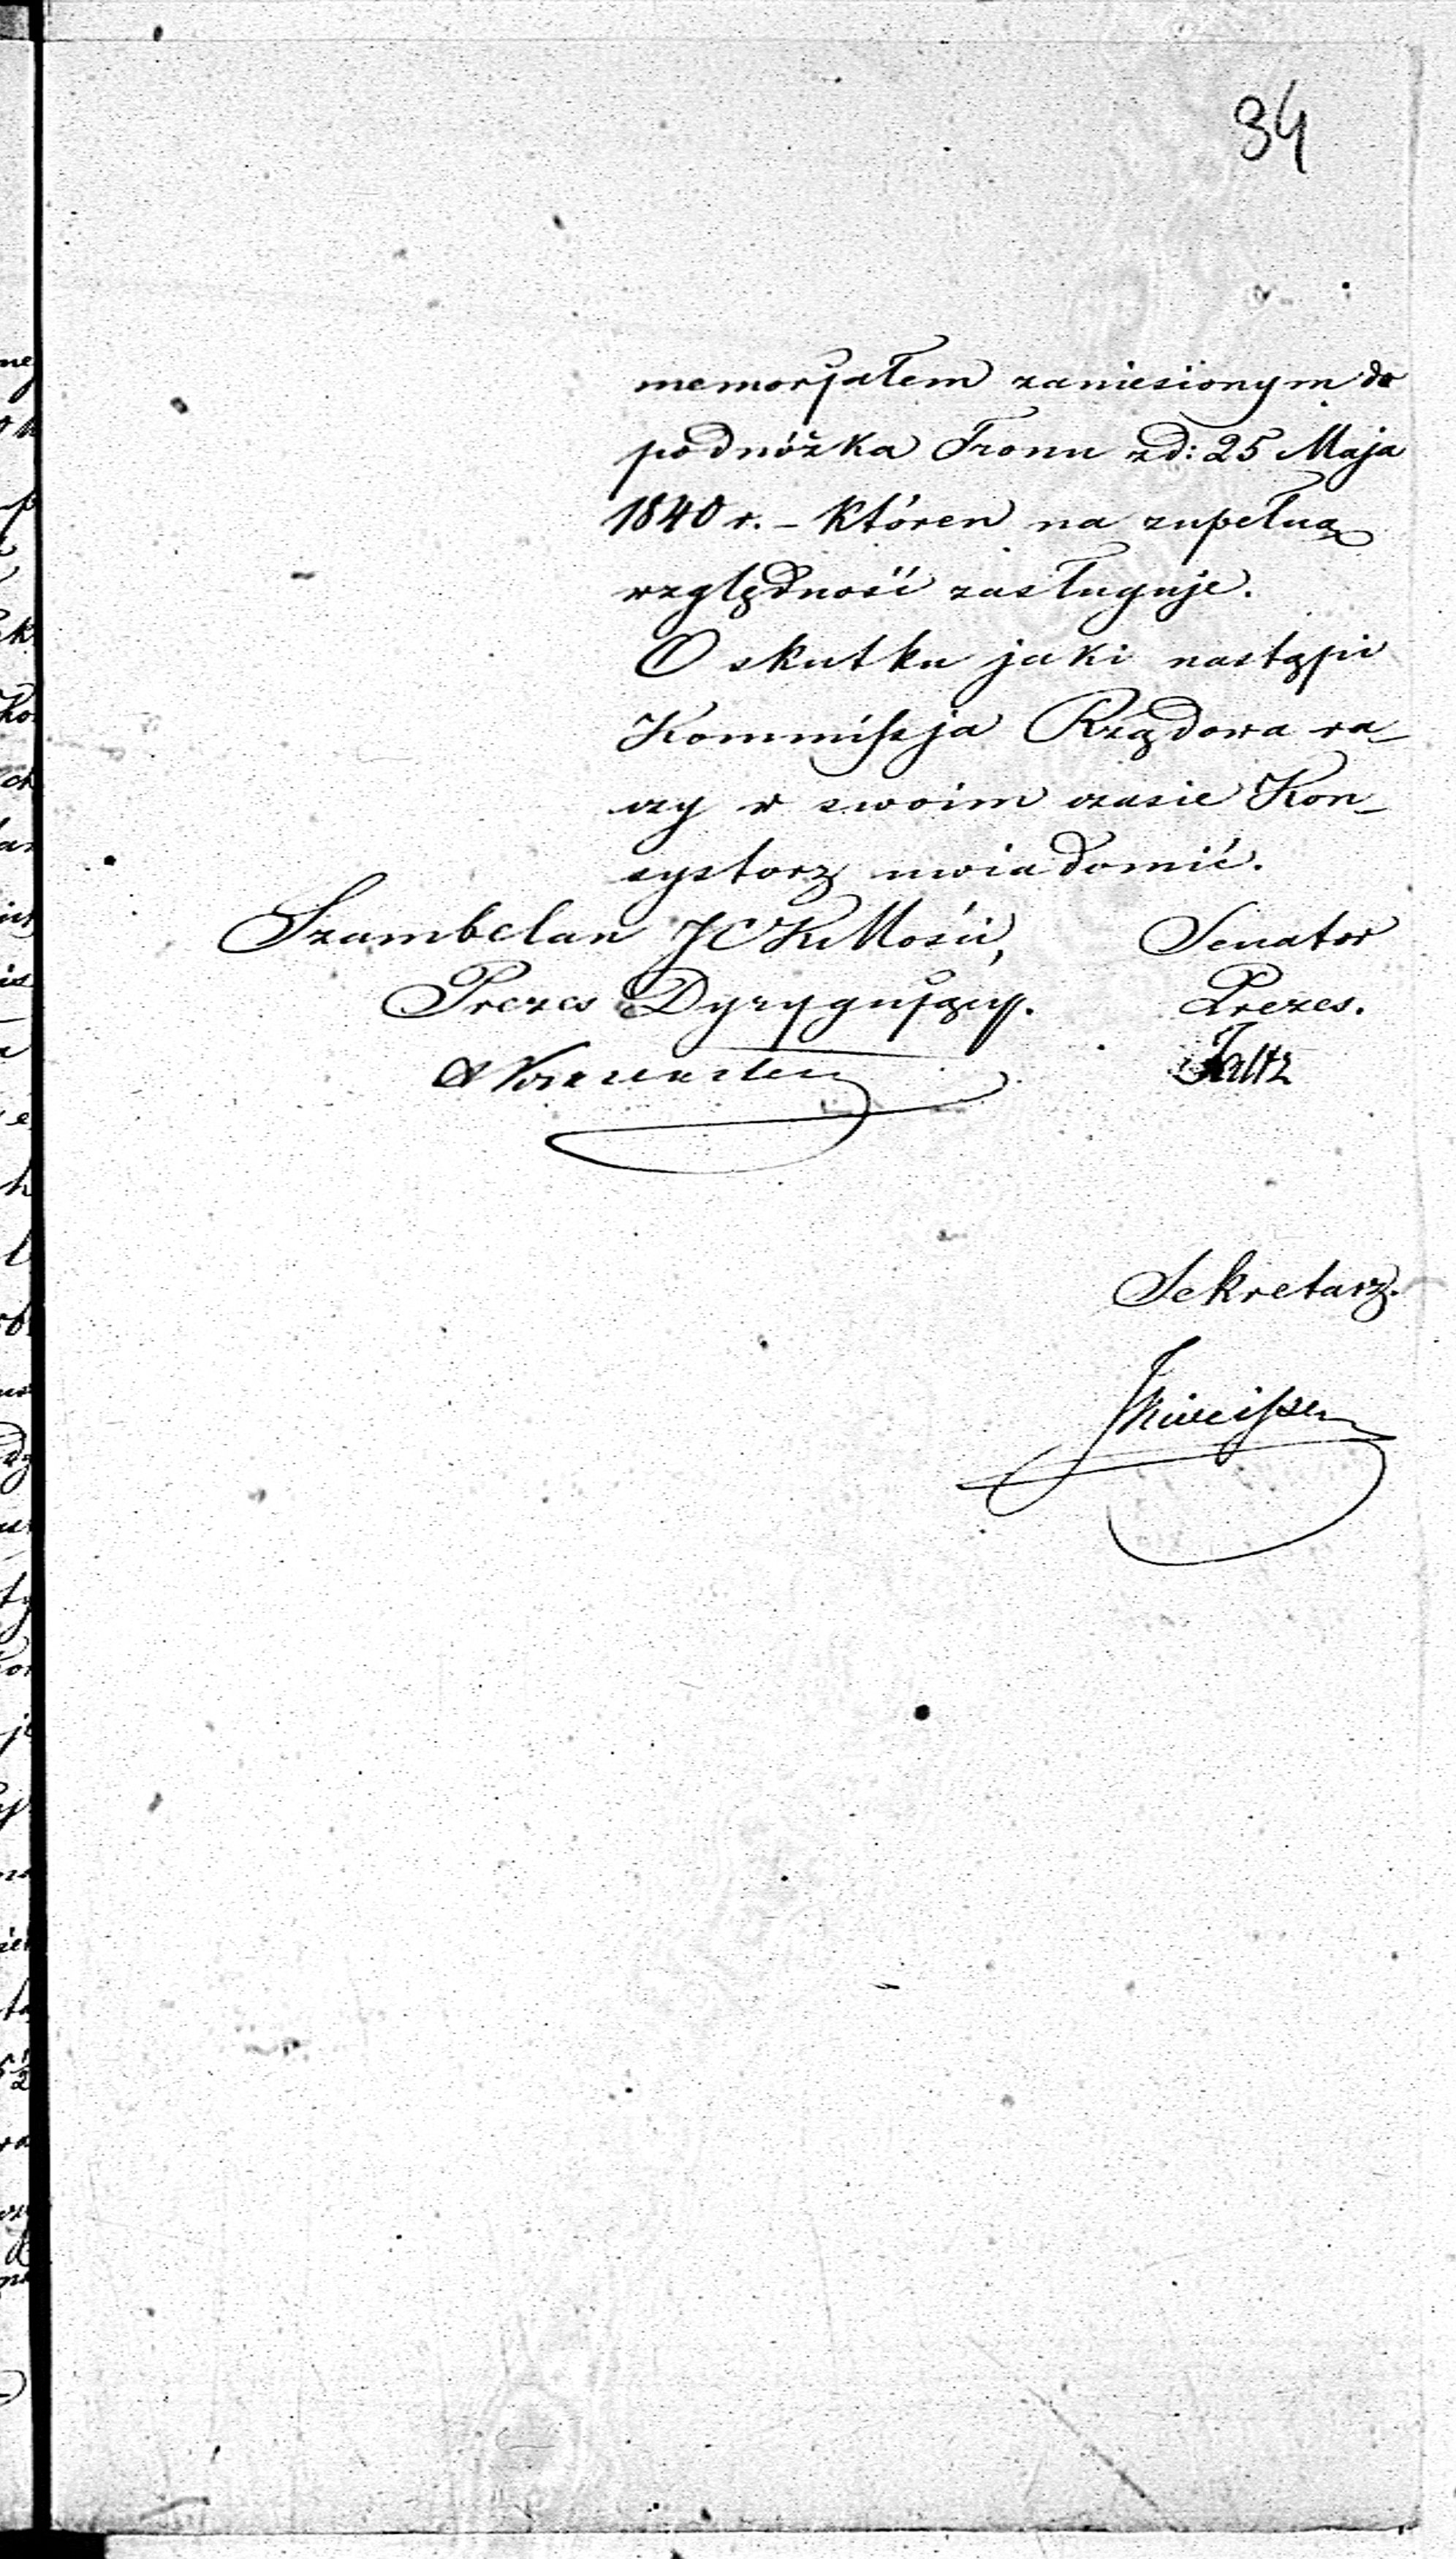 34
memorjałem zaniesionym do
podnóżka Tronu z d: 25 Maja
1840 r. – któren na zupełną
względność zasługuje.
O skutku jaki nastąpi
Kommissja Rządowa ra-
czy w swoim czasie Kon-
systorz uwiadomić.
Szambelan JCK Mości, Senator
Prezes Dyrygujący. Prezes.
Faltz
Sekretarz.